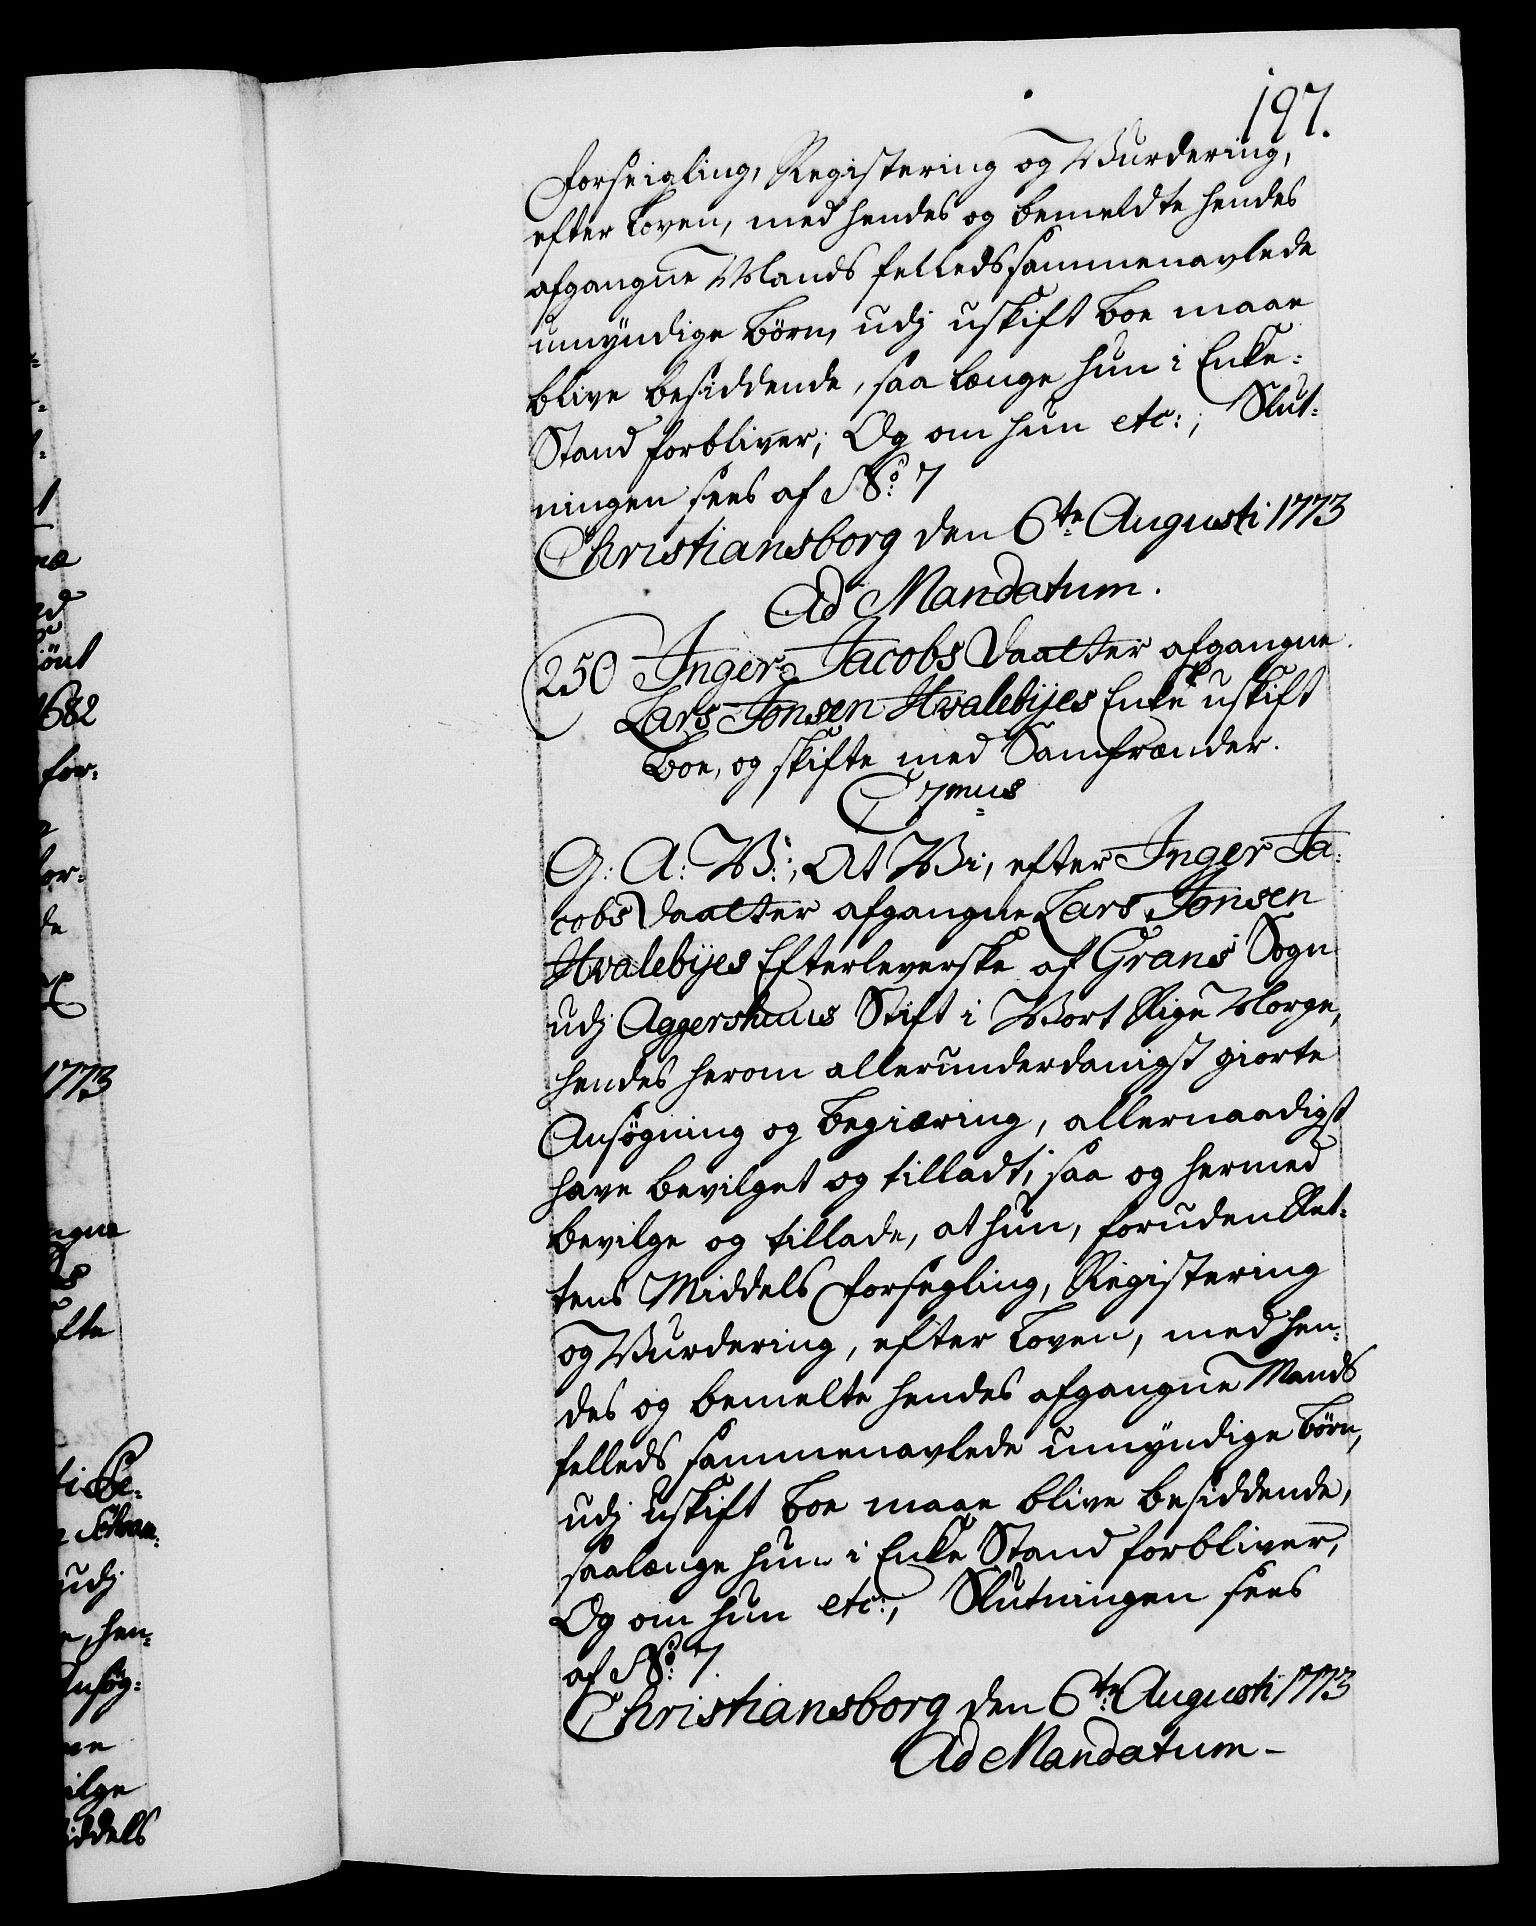 197.
Forseigling, Registering og Vurdering,
efter Loven, med hendes og bemeldte hendes
afgangne Mands felleds sammenavlede
umyndige Børn, udj uskift Boe maae
blive besiddende, saa længe hun i Enke-
Stand forbliver; Og om hun etc:, Slut-
ningen sees af No: 7
Christiansborg den 6te Augusti 1773
Ad Mandatum.
250 Inger Jacobs Daatter afgangne
Lars Jonsen Hvalebÿes Enke uskift
Boe, og skifte med Samfrænder.
C 7mus
G: A: V:, At Vi, efter Inger Ja-
cobs Daatter afgangne Lars Jonsen
Hvalebÿes Efterleverske af Grans Sogn
udj Aggershuus Stift i Vort Rige Norge,
hendes herom allerunderdanigst giorte
Ansøgning og begiæring, allernaadigst
have bevilget og tilladt, saa og hermed
bevilge og tillade, at hun, foruden Ret-
tens Middels Forsegling, Registering
og Vurdering, efter Loven, med hen-
des og bemelte hendes afgangne Mands
felleds sammenavlede umyndige Børn,
udj uskift Boe maae blive besiddende,
saalænge hun i Enke Stand forbliver,
Og om hun etc:, Slutningen sees
af No: 7.
Christiansborg den 6te Augusti 1773
Ad Mandatum-
1682
for-
1773
udj
hen-
Ansøg-